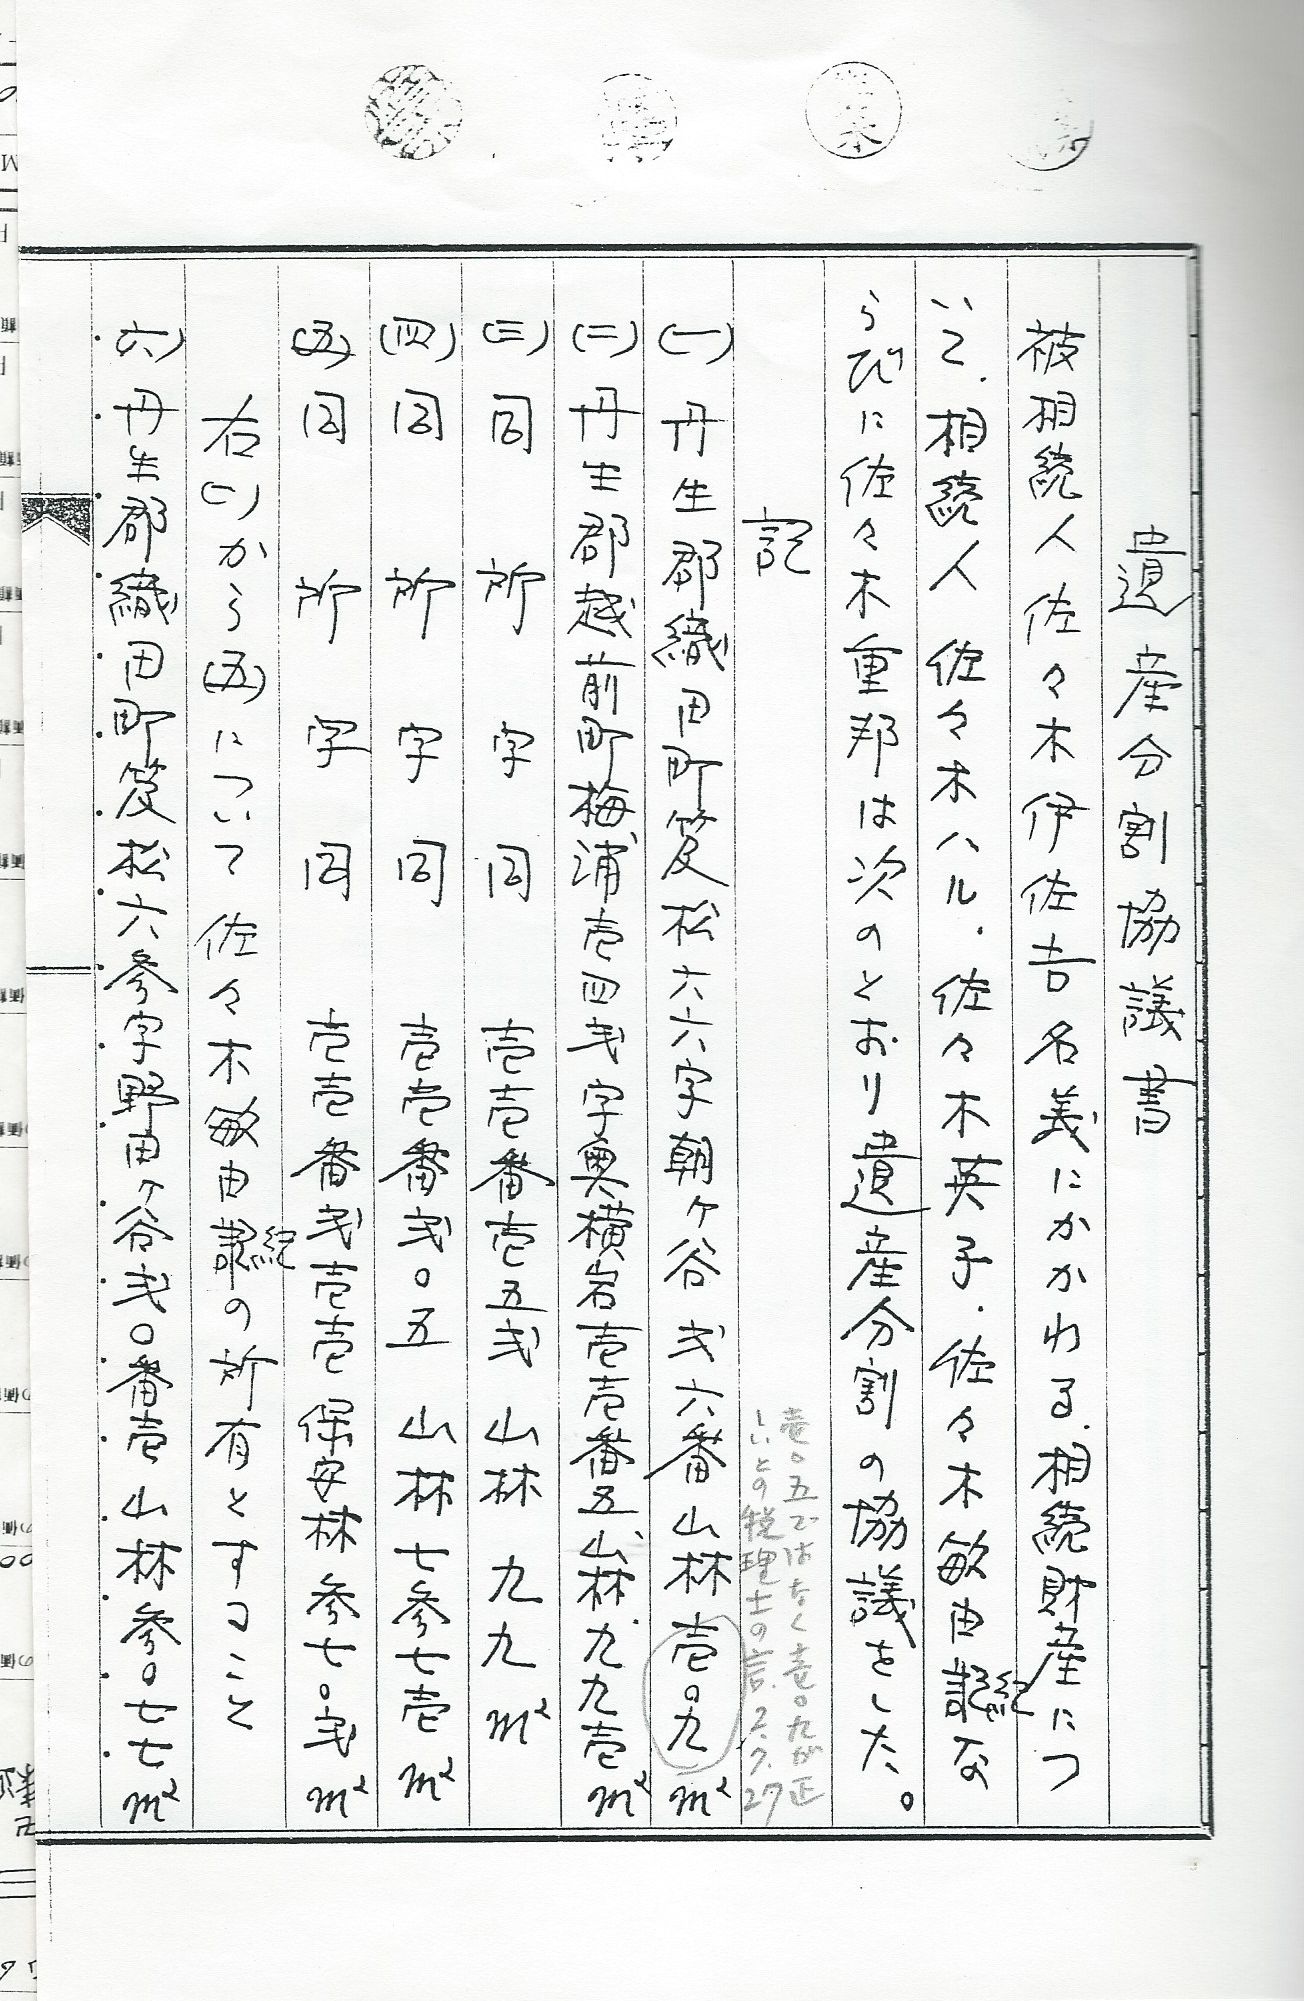 遺産分割協議書
被相続人佐々木伊佐吉名義にかかわる.相続財産につ
いて.相続人佐々木ハル.佐々木英子.佐々木敏由紀な
らびに佐々木重邦は次のとおり遺産分割の協議をした。
記
壱〇五ではなく壱〇九が正
しいとの税理士の言.2.7.27
(一)丹生郡織田町笈松六六字朝ヶ谷弐六番山林壱〇九m²
(二)丹生郡越前町梅浦壱四弐字奥横岩壱壱番五山林九九壱m²
(三)同所字同壱壱番壱五弐山林九九m²
(四)同所字同壱壱番弐〇五山林七参七壱m²
(五)同所字同壱壱番弐壱壱保安林参七〇弐m²
右(一)から(五)について佐々木敏由紀の所有とすること
六)丹生郡織田町笈松六参字野田ヶ谷弐〇番壱山林参〇七七m²